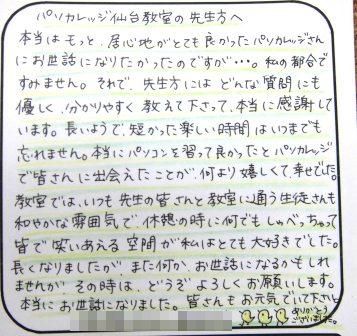 パソカレッジ仙台教室の先生方へ
本当はもっと、居心地がとても良かったパソカレッジさん
にお世話になりたかったのですが…。私の都合で
すみません。それで、先生方には どんな質問にも
優しく、分かりやすく 教えて下さって、本当に感謝して
います。長いようで、短かった楽しい時間 はいつまでも
忘れません。本当にパソコンを習って良かったとパソカレッジ
で皆さんに出会えたことが、何より嬉しくて、幸せでした。
教室では、いつも先生の皆さんと教室に通う生徒さんも
和やかな雰囲気で、休憩の時に何でもしゃべっちゃって
皆で笑いあえる空間が私はとても大好きでした。
長くなりましたが、また何か、お世話になるかもしれ
ませんが、その時は、どうぞよろしくお願いします。
本当にお世話になりました。皆さんもお元気でいて下さい。
ありがとう
ございました。